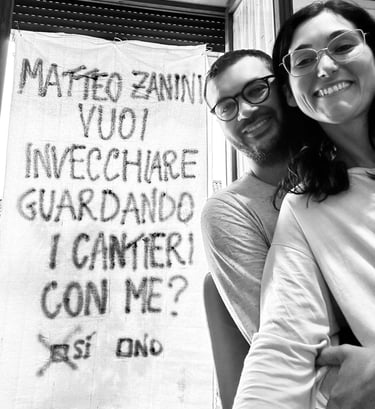 MATTEO ZANINI
VUOI
INVECCHIARE
GUARDANDO
I CANTIERI
CON ME?
SÍ NO